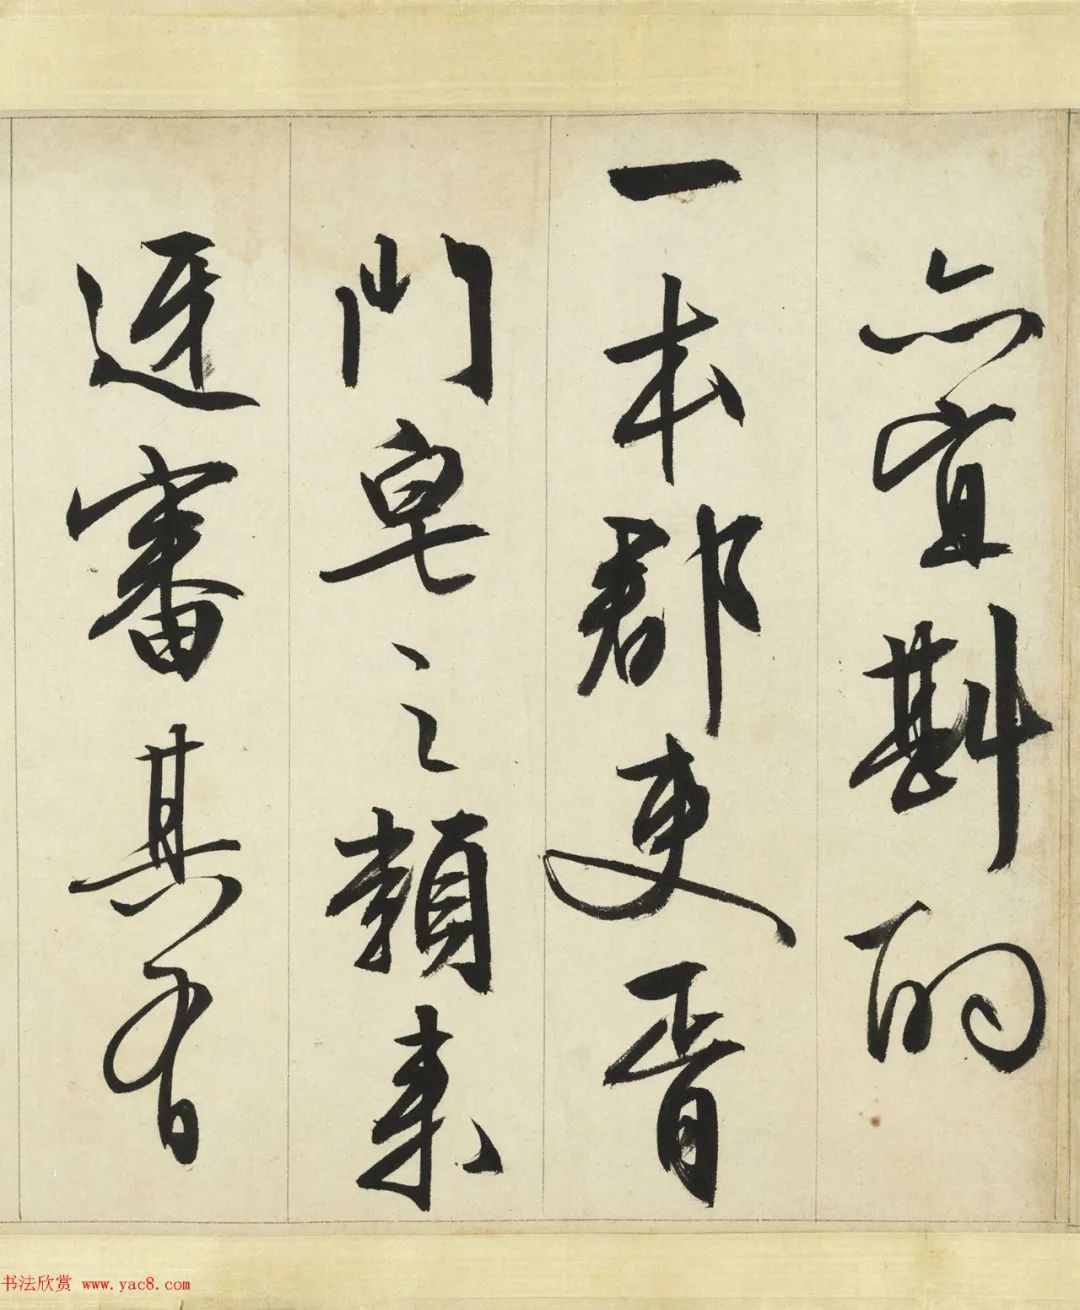 亦宜斟酌
一本郡吏胥
門皂之類來
迓審其有
书法欣赏 www.yac8.com